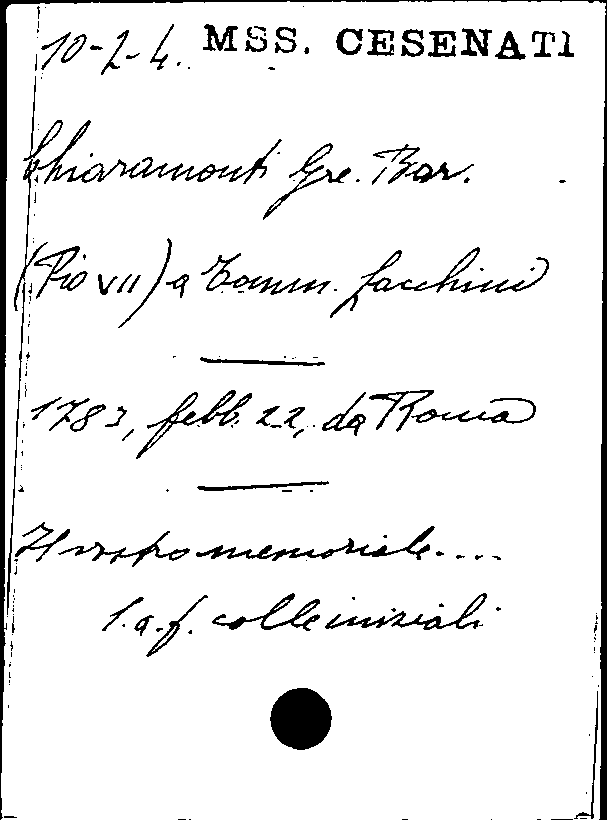 10-2-4. MSS. CESENATI
Chiaramonti Gre. Bar.
(Pio VII) a Tomm. facchini
1783, febb. 22, da Roma
Il vostro memoriale....
l.a.f. colle iniziali